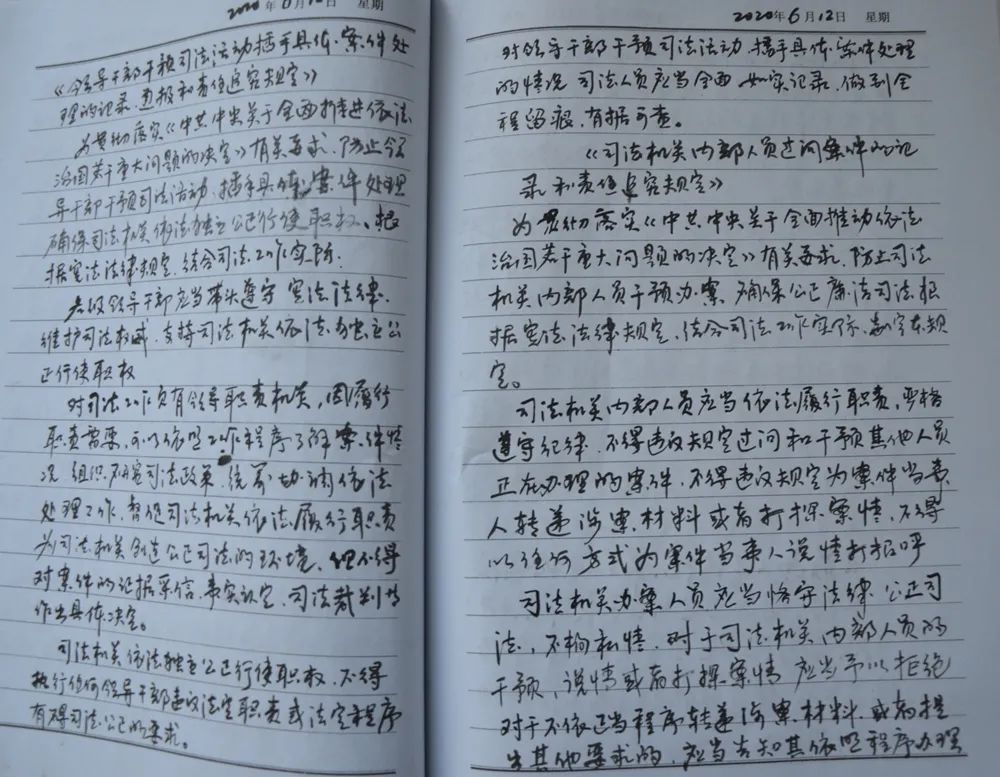 2020年6月12日 星期
《领导干部干预司法活动插手具体案件处
理的记录、通报和责任追究规定》
为贯彻落实《中共中央关于全面推进依法
治国若干重大问题的决定》有关要求，防止领
导干部干预司法活动、插手具体案件处理
确保司法机关依法独立公正行使职权、根
据宪法法律规定，结合司法工作实际.
各级领导干部应当带头遵守宪法法律、
维护司法权威、支持司法机关依法独立公
正行使职权
对司法工作负有领导职责机关，因履行
职责需要，可以依照工作程序了解案件情
况、组织研究司法政策、统筹协调依法
处理工作、督促司法机关依法履行职责
为司法机关创造公正司法的环境、但不得
对案件的证据采信、事实认定、司法裁判等
作出具体决定。
司法机关依法独立公正行使职权、不得
执行任何领导干部违反法定职责或法定程序
有碍司法公正的要求。
2020年6月12日 星期
对领导干部干预司法活动、插手具体案件处理
的情况 司法人员应当全面、如实记录、做到全
程留痕，有据可查。
《司法机关内部人员过问案件的记
录和责任追究规定》
为贯彻落实《中共中央关于全面推动依法
治国若干重大问题的决定》有关要求，防止司法
机关内部人员干预办案、确保公正廉洁司法根
据宪法法律规定、结合司法工作实际、制定本规
定。
司法机关内部人员应当依法履行职责，严格
遵守纪律、不得违反规定过问和干预其他人员
正在办理的案件，不得违反规定为案件当事
人转递涉案材料或者打探案情、不得
以任何方式为案件当事人说情打招呼
司法机关办案人员应当恪守法律 公正司
法，不徇私情、对于司法机关内部人员的
干预、说情或者打探案情 应当予以拒绝
对于不依正当程序转递涉案材料、或者提
出其他要求的、应当告知其依照程序办理